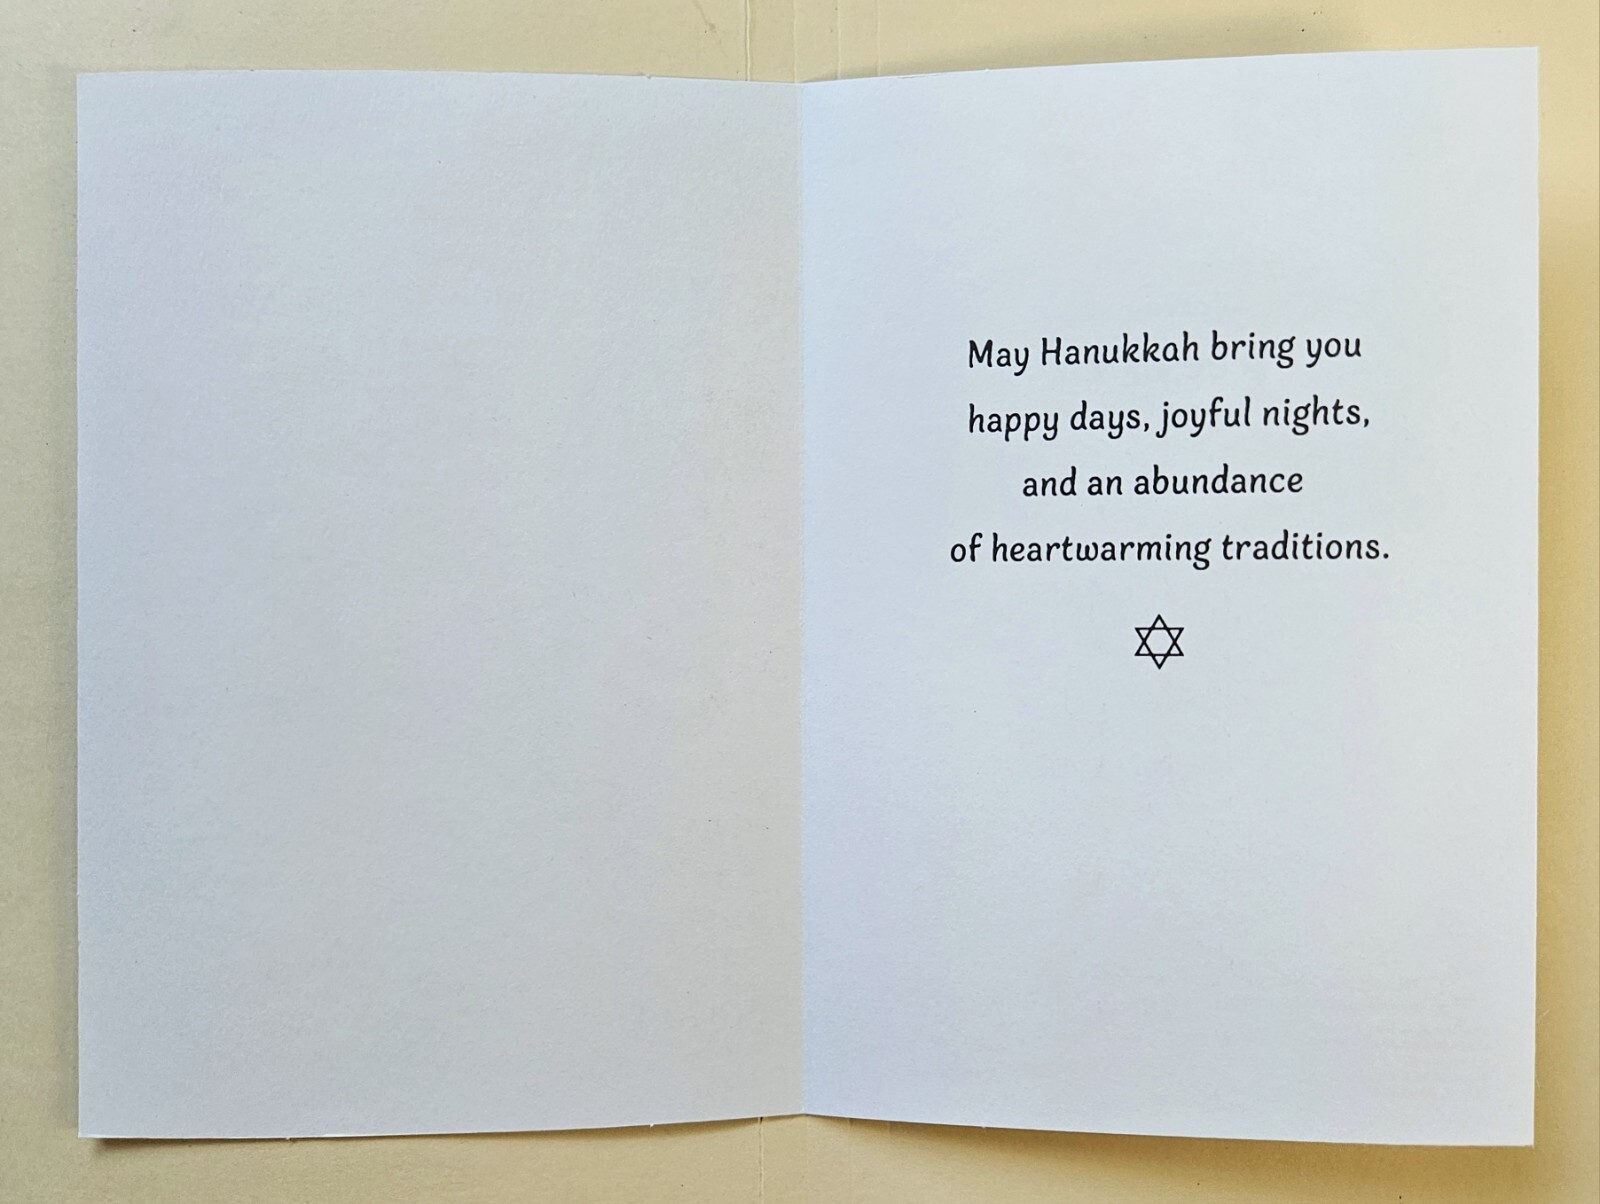 May Hanukkah bring you
happy days, joyful nights,
and an abundance
of heartwarming traditions.